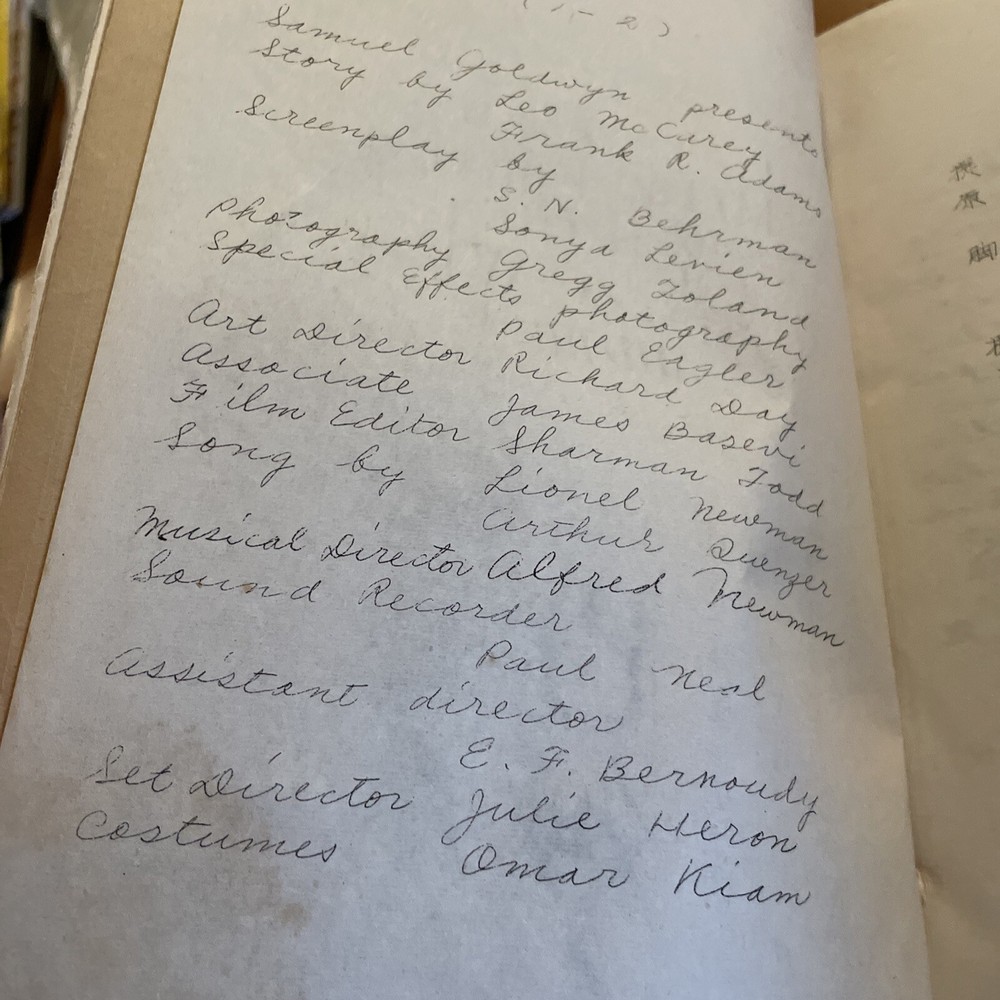 (1-2)
Samuel Goldwyn presents
Story by Leo McCarey
Frank R. Adams
Screenplay by
S. N. Behrman
Sonya Levien
Photography Gregg Toland
Special Effects photography
Paul Eagler
Art Director Richard Day
Associate James Basevi
Film Editor Sharman Todd
Song by Lionel Newman
Arthur Quenzer
Musical Director Alfred Newman
Sound Recorder
Paul Neal
Assistant director
E. F. Bernoudy
Set Director Julie Heron
Costumes Omar Kiam
原
脚